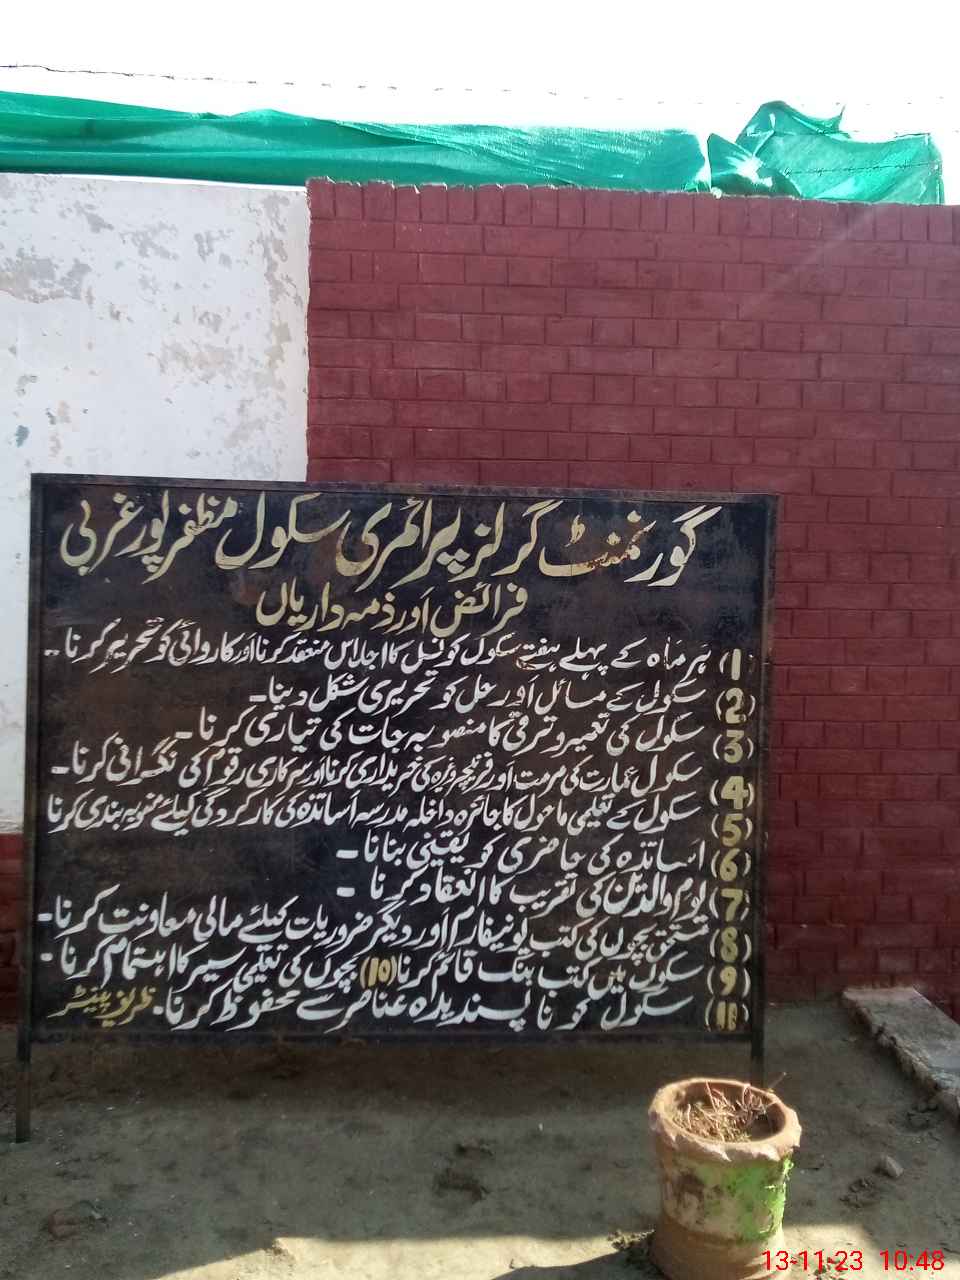 گورنمنٹ گرلز پرائمری سکول مظفر پور غربی
فرائض اور ذمہ داریاں
(1) ہر ماہ کے پہلے ہفتے سکول کونسل کا اجلاس منعقد کرنا اور کاروائی کو تحریر کرنا۔۔
(2) سکول کے مسائل اور حل کو تحریری شکل دینا۔
(3) سکول کی تعمیر و ترقی کا منصوبہ جات کی تیاری کرنا۔
(4) سکول عمارت کی مرمت اور فرنیچر وغیرہ کی خریداری کرنا اور سرکاری رقوم کی نگرانی کرنا۔
(5) سکول کے تعلیمی ماحول کا جائزہ داخلہ مدرسہ اساتذہ کی کارکردگی کیلئے منصوبہ بندی کرنا
(6) اساتذہ کی حاضری کو یقینی بنانا۔
(7) یوم والدین کی تقریب کا انعقاد کرنا۔
(8) مستحق بچوں کی کتب یونیفارم اور دیگر ضروریات کیلئے مالی معاونت کرنا۔
(9) سکول میں کتب بنک قائم کرنا (10) بچوں کی تعلیمی سیر کا اہتمام کرنا۔
(11) سکول کو ناپسندیدہ عناصر سے محفوظ کرنا۔ ظریف پینٹر
13-11-23 10:48